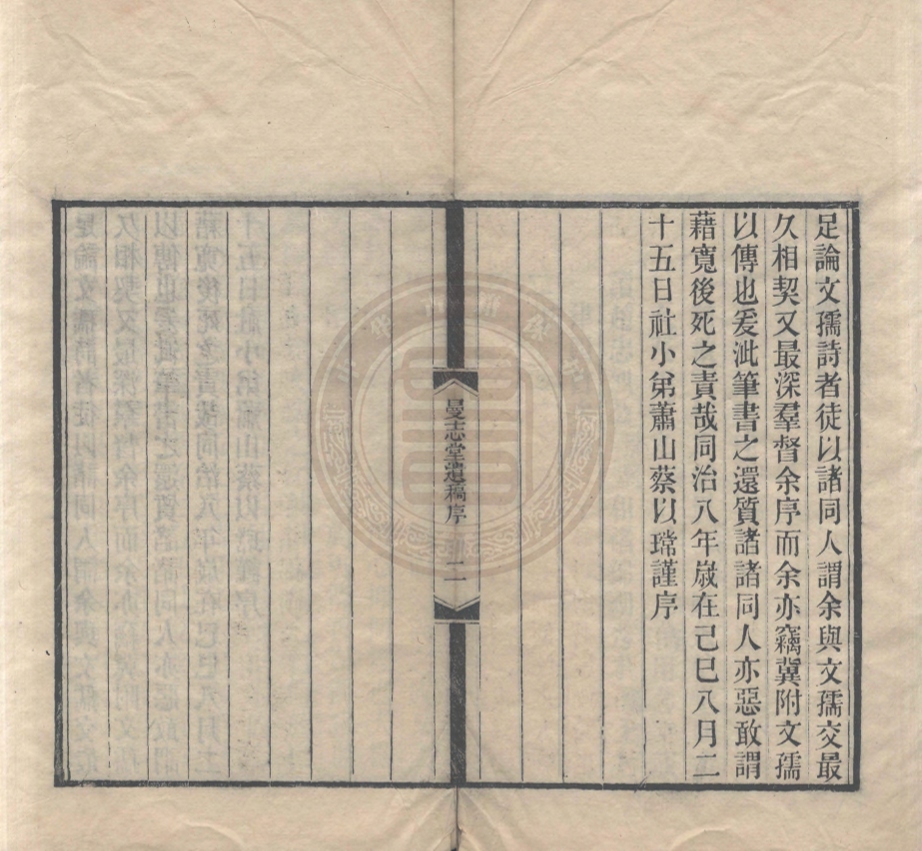 足論文孺詩者徒以諸同人謂余與文孺交最
久相契又最深羣督余序而余亦竊冀附文孺
以傳也爰泚筆書之還質諸諸同人亦惡敢謂
藉寬後死之責哉同治八年歲在己巳八月二
十五日社小弟蕭山蔡以瑺謹序
曼志堂遺稿序
二